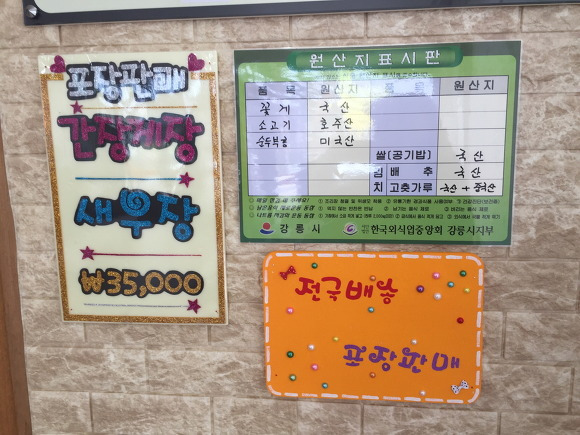 포장판매
간장게장
새우장
₩35,000
원산지표시판
품목 원산지 품목 원산지
꽃게 국산
소고기 호주산
순두부콩 미국산
쌀(공기밥) 국산
배추 국산
치 고춧가루 국산+중국산
강릉시 한국외식업중앙회 강릉시지부
전국배송
포장판매